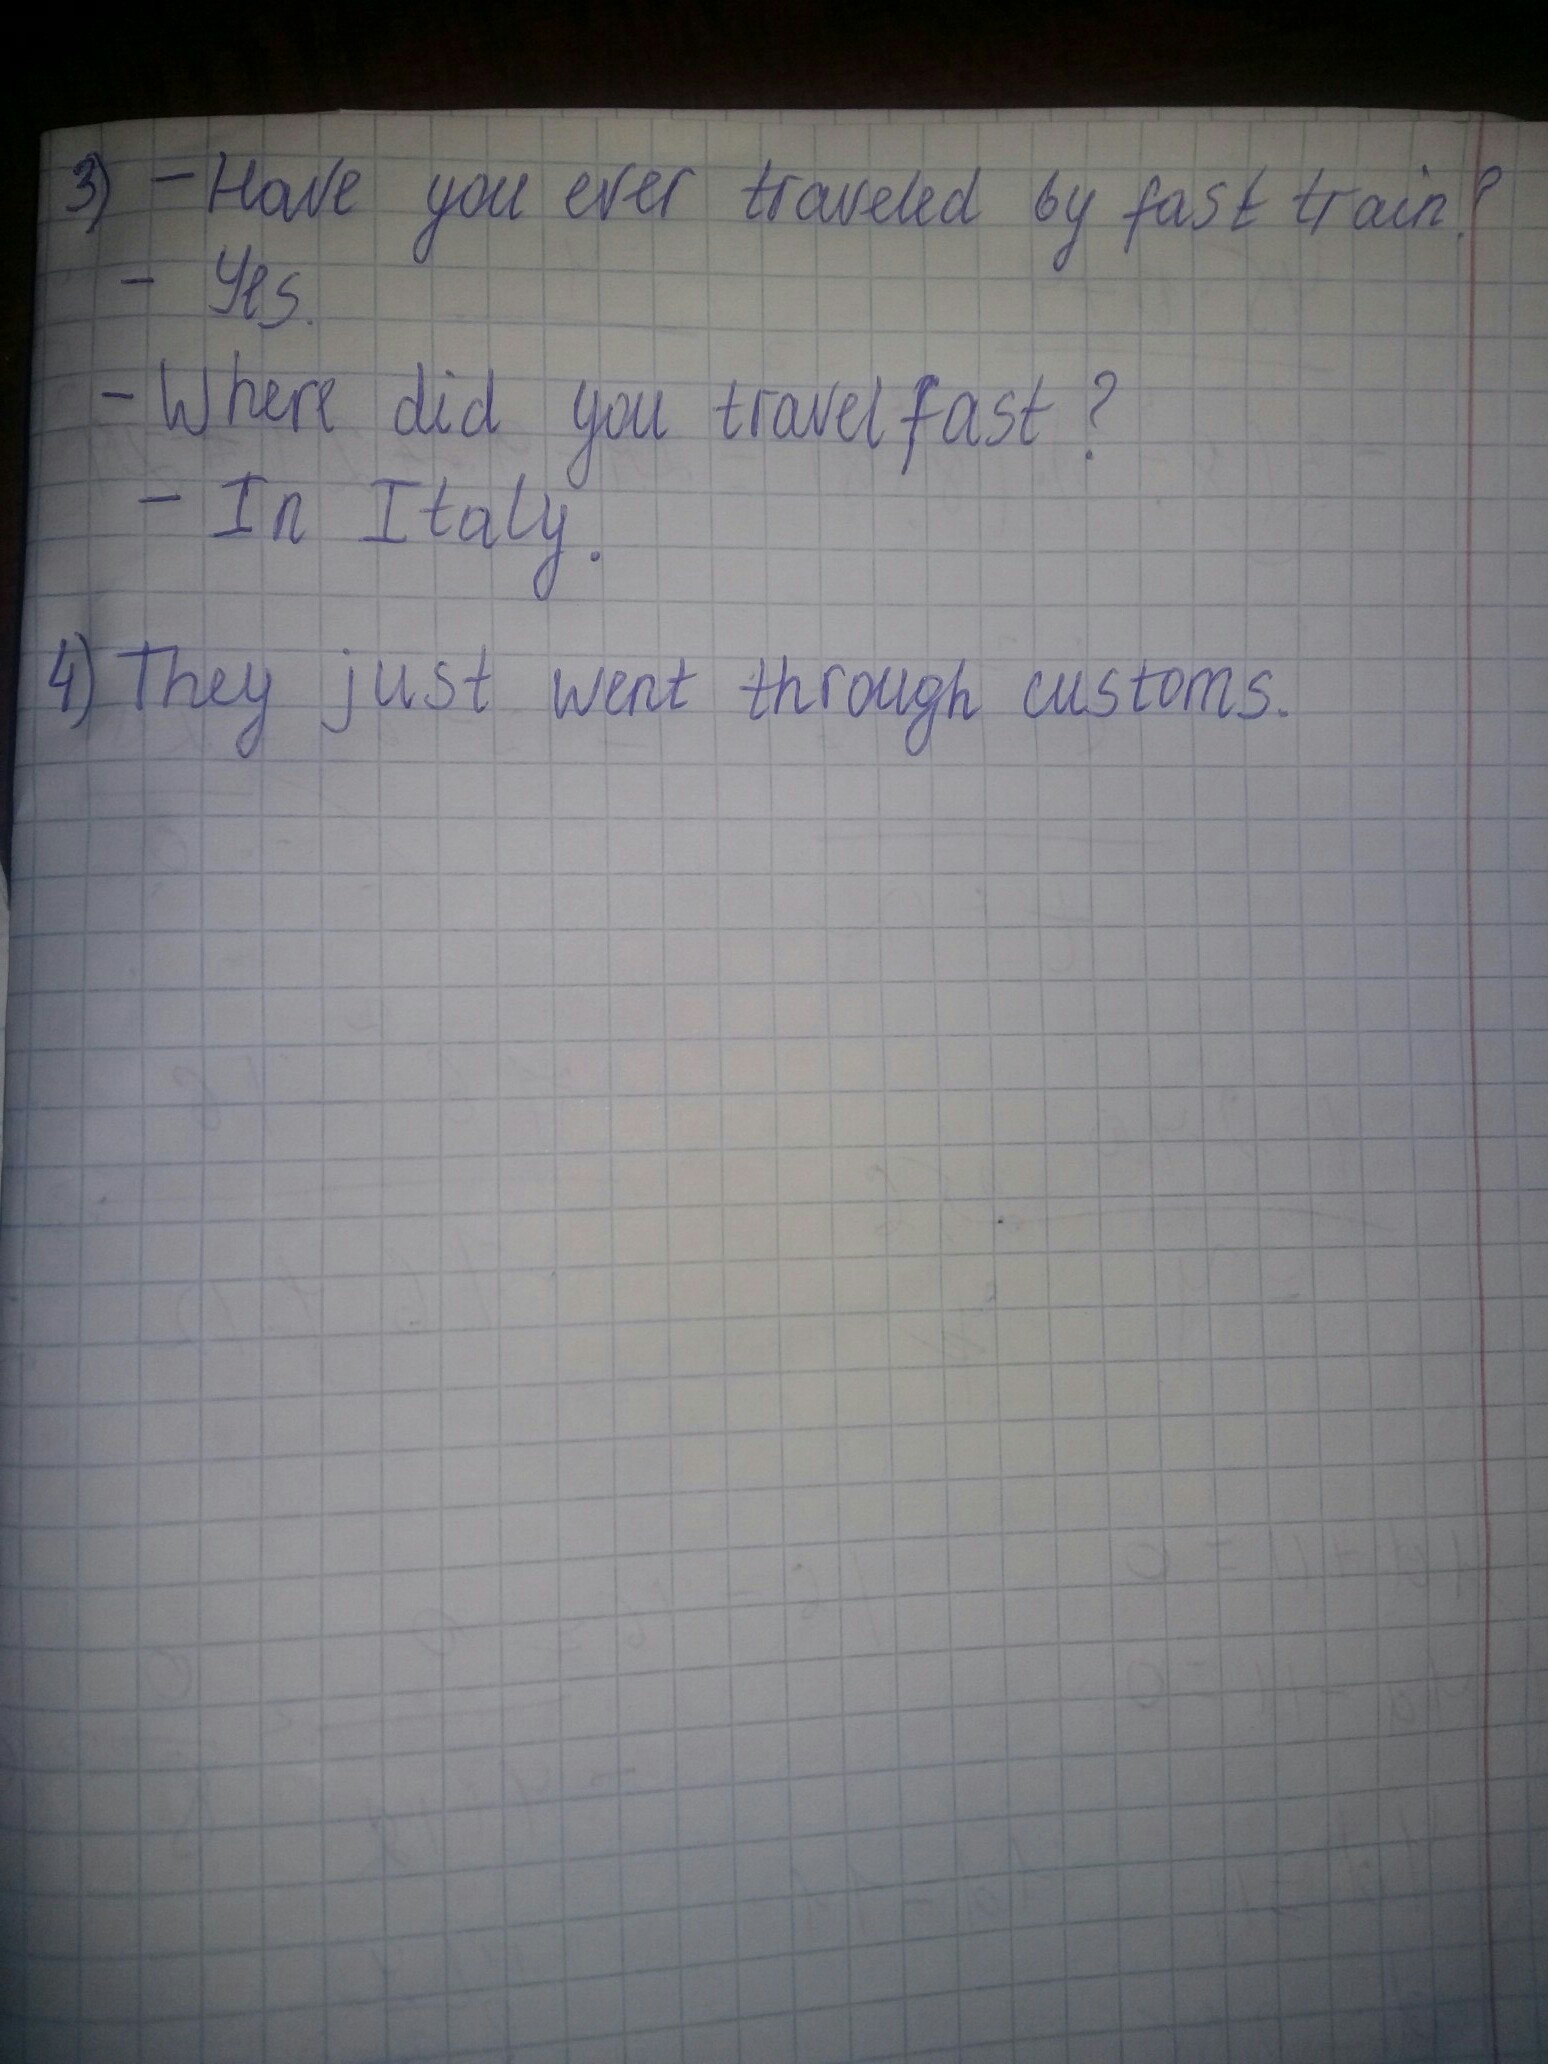 3) - Have you ever traveled by fast train?
- Yes.
- Where did you travel fast?
- In Italy.
4) They just went through customs.